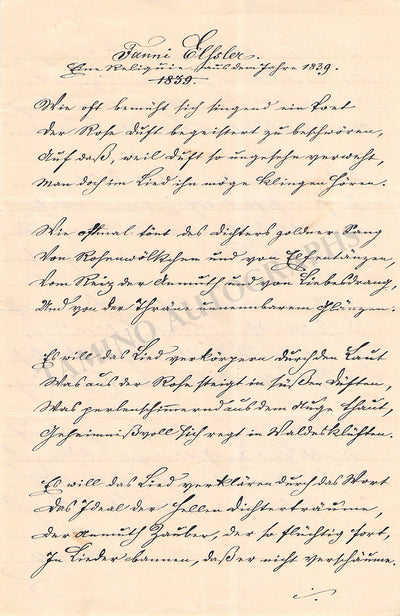 Fanni Elssler.
Eine Reliquie aus dem Jahre 1839.
1839.
Wie oft bemüht sich singend ein Poet
Der Rose Duft begeistert zu beschwören,
Auf daß, weil Duft so ungesehn verweht,
Man doch im Lied ihn möge klingen hören.
Wie oftmal tönt des Dichters goldner Sang
Von Rosenwölkchen und von Elfentänzen,
Vom Reiz der Anmuth und von Liebesdrang,
Und von der Thräne unnennbarem Glänzen.
Es will das Lied verkörpern durch den Laut
Was aus der Rose steigt in süßen Düften,
Was perlenschimmernd aus dem Auge thaut,
Geheimnißvoll sich regt in Waldesklüften.
Es will das Lied verklären durch das Wort
Das Ideal der hellen Dichterträume,
Der Anmuth Zauber, der so flüchtig fort,
In Lieder bannen, daß er nicht verschäume.
TAMINO AUTOGRAPHS